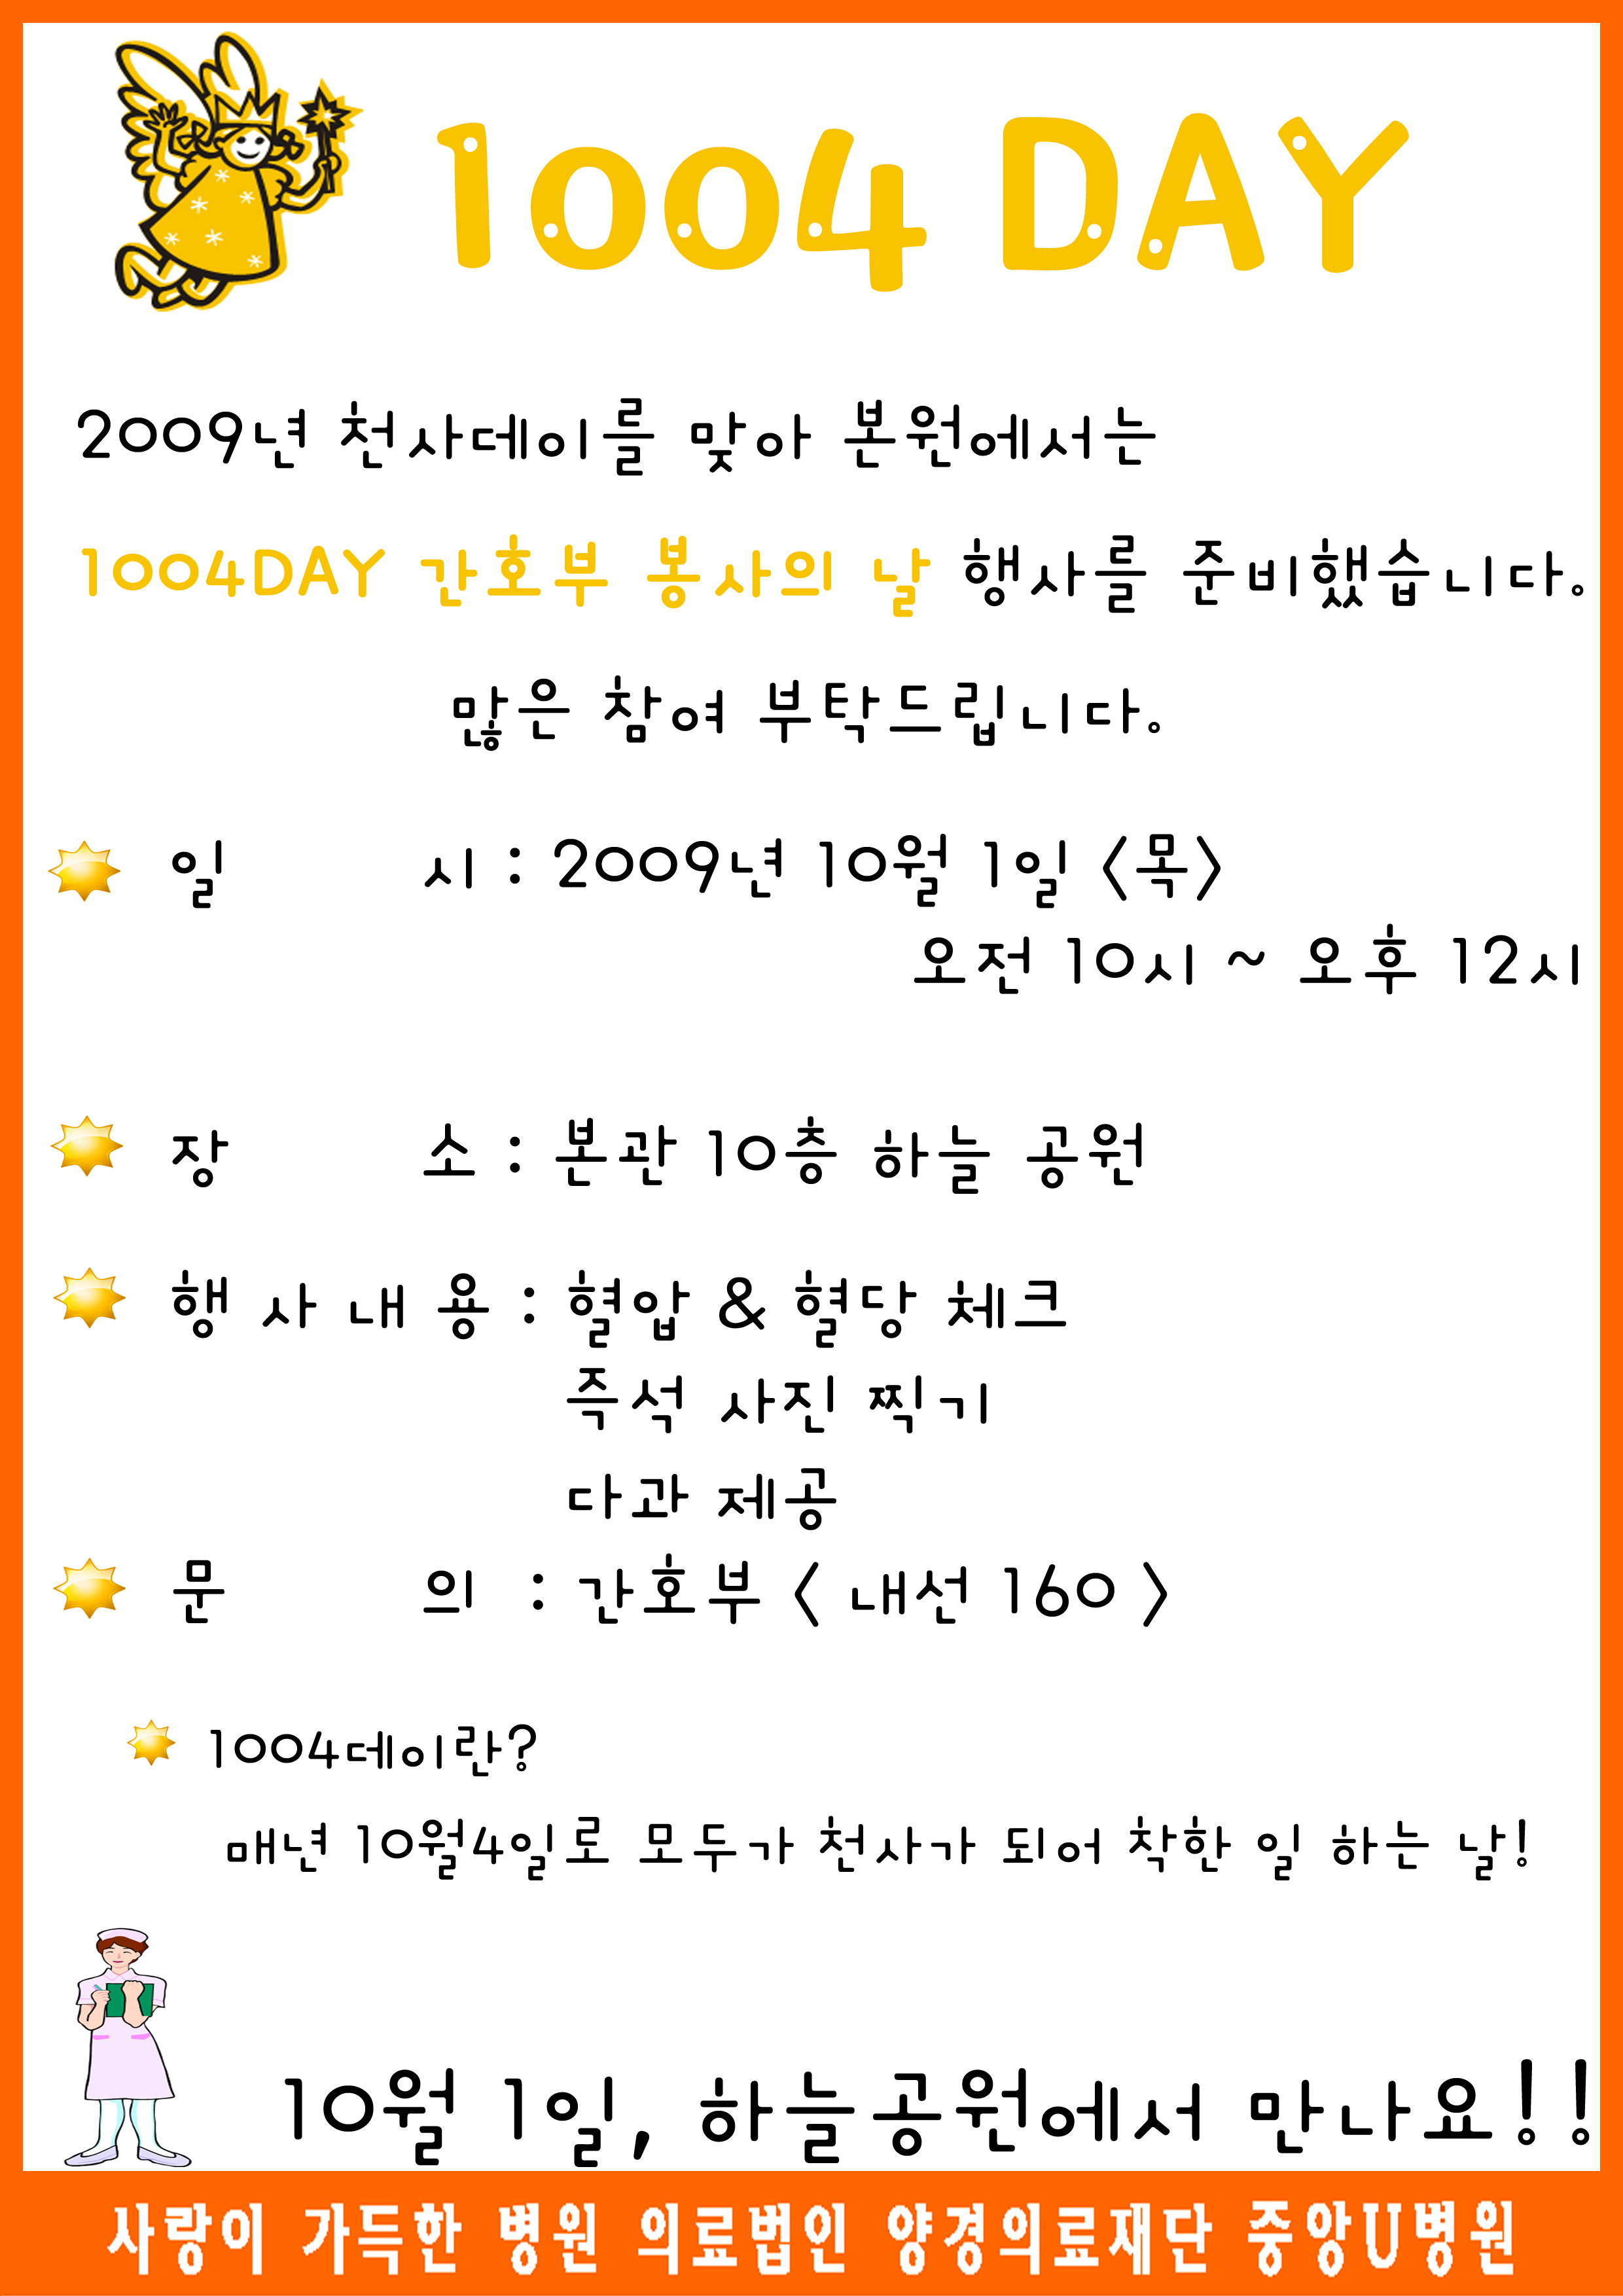 1004 DAY
2009년 천사데이를 맞아 본원에서는
1004DAY 간호부 봉사의 날 행사를 준비했습니다.
많은 참여 부탁드립니다.
일 시 : 2009년 10월 1일 <목>
오전 10시 ~ 오후 12시
장 소 : 본관 10층 하늘 공원
행 사 내 용 : 혈압 & 혈당 체크
즉석 사진 찍기
다과 제공
문 의 : 간호부 < 내선 160 >
1004데이란?
매년 10월4일로 모두가 천사가 되어 착한 일 하는 날!
10월 1일, 하늘공원에서 만나요!!
사랑이 가득한 병원 의료법인 양경의료재단 중앙U병원